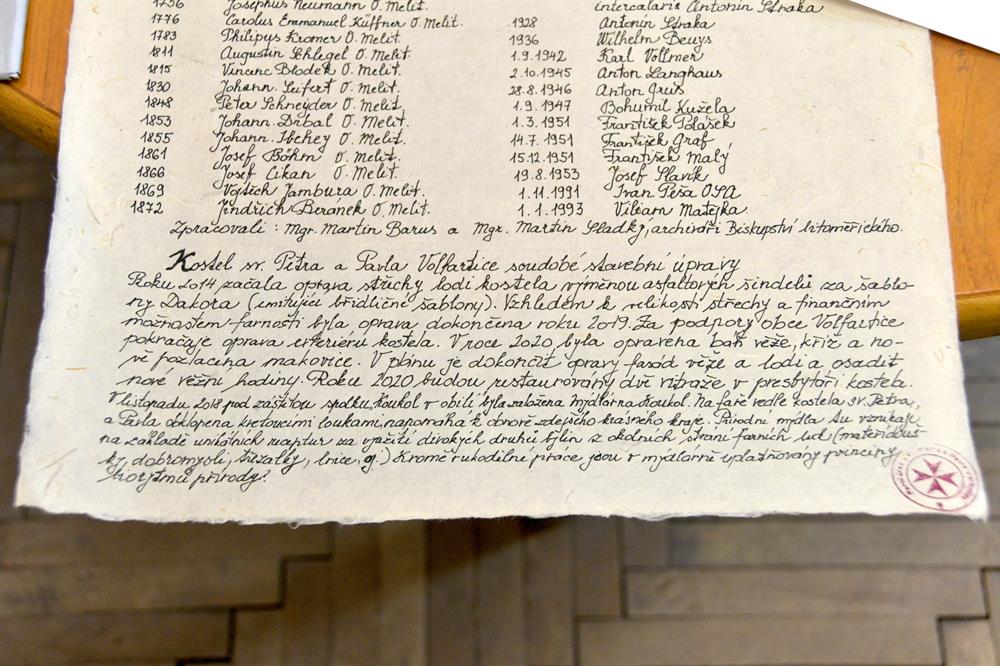 1756 Josephus Neumann O. Melit.
1776 Carolus Emmanuel Küffner O. Melit.
1783 Philipus Kromer O. Melit.
1811 Augustin Schlegel O. Melit.
1815 Vincenc Blodek O. Melit.
1830 Johann. Seifert O. Melit.
1848 Peter Schneyder O. Melit.
1853 Johann. Drbal O. Melit.
1855 Johann. O. Melit.
1861 Josef Böhm O. Melit.
1866 Josef Cikan O. Melit.
1869 Vojtěch Jambura O. Melit.
1872 Jindřich Beránek O. Melit.
intercalaris Antonín Straka
1928 Antonín Straka
1936 Wilhelm Beuys
1.9.1942 Karl Vollmer
2.10.1945 Anton Langhaus
28.8.1946 Anton Grus
1.9.1947 Bohumil Kužela
1.3.1951 František Polášek
14.7.1951 František Graf
15.12.1951 František Malý
19.8.1953 Josef Slavík
1.11.1991 Ivan Peša OSA
1.1.1993 Viliam Matejka
Zpracovali: Mgr. Martin Barus a Mgr. Martin Sladký, archiváři Biskupství litoměřického.
Kostel sv. Petra a Pavla Volfartice soudobé stavební úpravy
Roku 2014 začala oprava střechy lodi kostela výměnou asfaltových šindelů za šablo-
ny Dakora (imitující břidličné šablony). Vzhledem k velikosti střechy a finančním
možnostem farnosti byla oprava dokončena roku 2019. Za podpory obce Volfartice
pokračuje oprava exteriéru kostela. V roce 2020 byla opravena báň věže, kříž a no-
vě pozlacena makovice. V plánu je dokončit opravy fasád věže a lodi a osadit
nové věžní hodiny. Roku 2020 budou restaurovány dvě vitráže v presbytáři kostela.
V listopadu 2018 pod záštitou spolku Koukol v obilí byla založena Mýdlárna Koukol. Na faře vedle kostela sv. Petra
a Pavla obklopena kvetoucími loukami, napomáhá k obnově zdejšího krásného kraje. Přírodní mýdla tu vznikají
na základě unikátních receptur za využití divokých druhů bylin z okolních strání farních luk (mateřídouš-
ky, dobromysli, třezalky, lnice, aj.) Kromě rukodílné práce jsou v mýdlárně uplatňovány principy
biorytmu přírody.